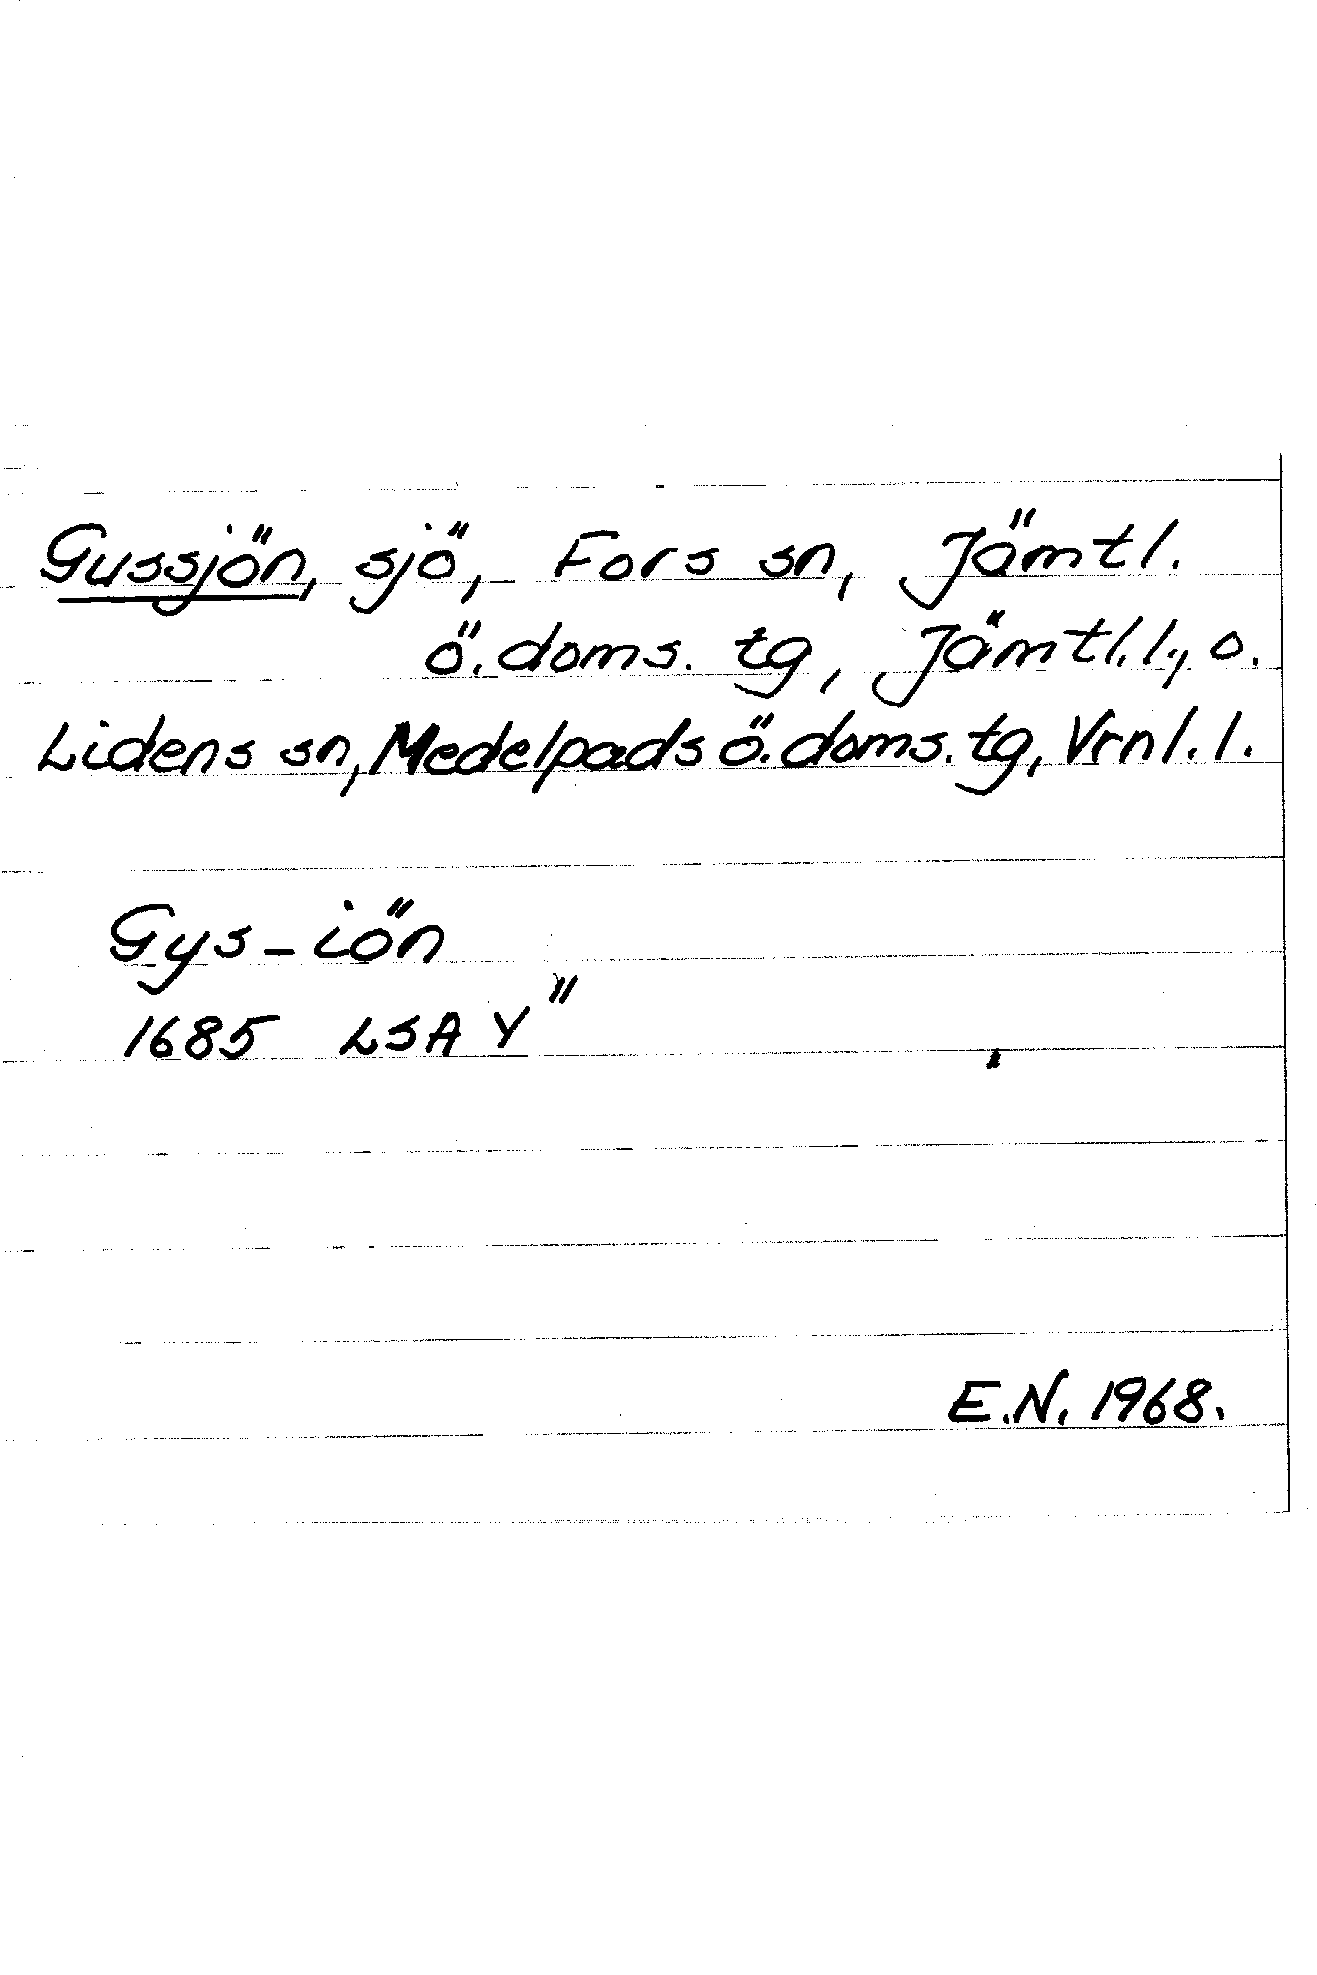 Gussjön, sjö, Fors sn, Jämtl.
ö. doms. tg, Jämtl. l., o.
Lidens sn, Medelpads ö. doms. tg, Vrnl. l.
Gys-iön
1685 LSA Y"
E.N. 1968.